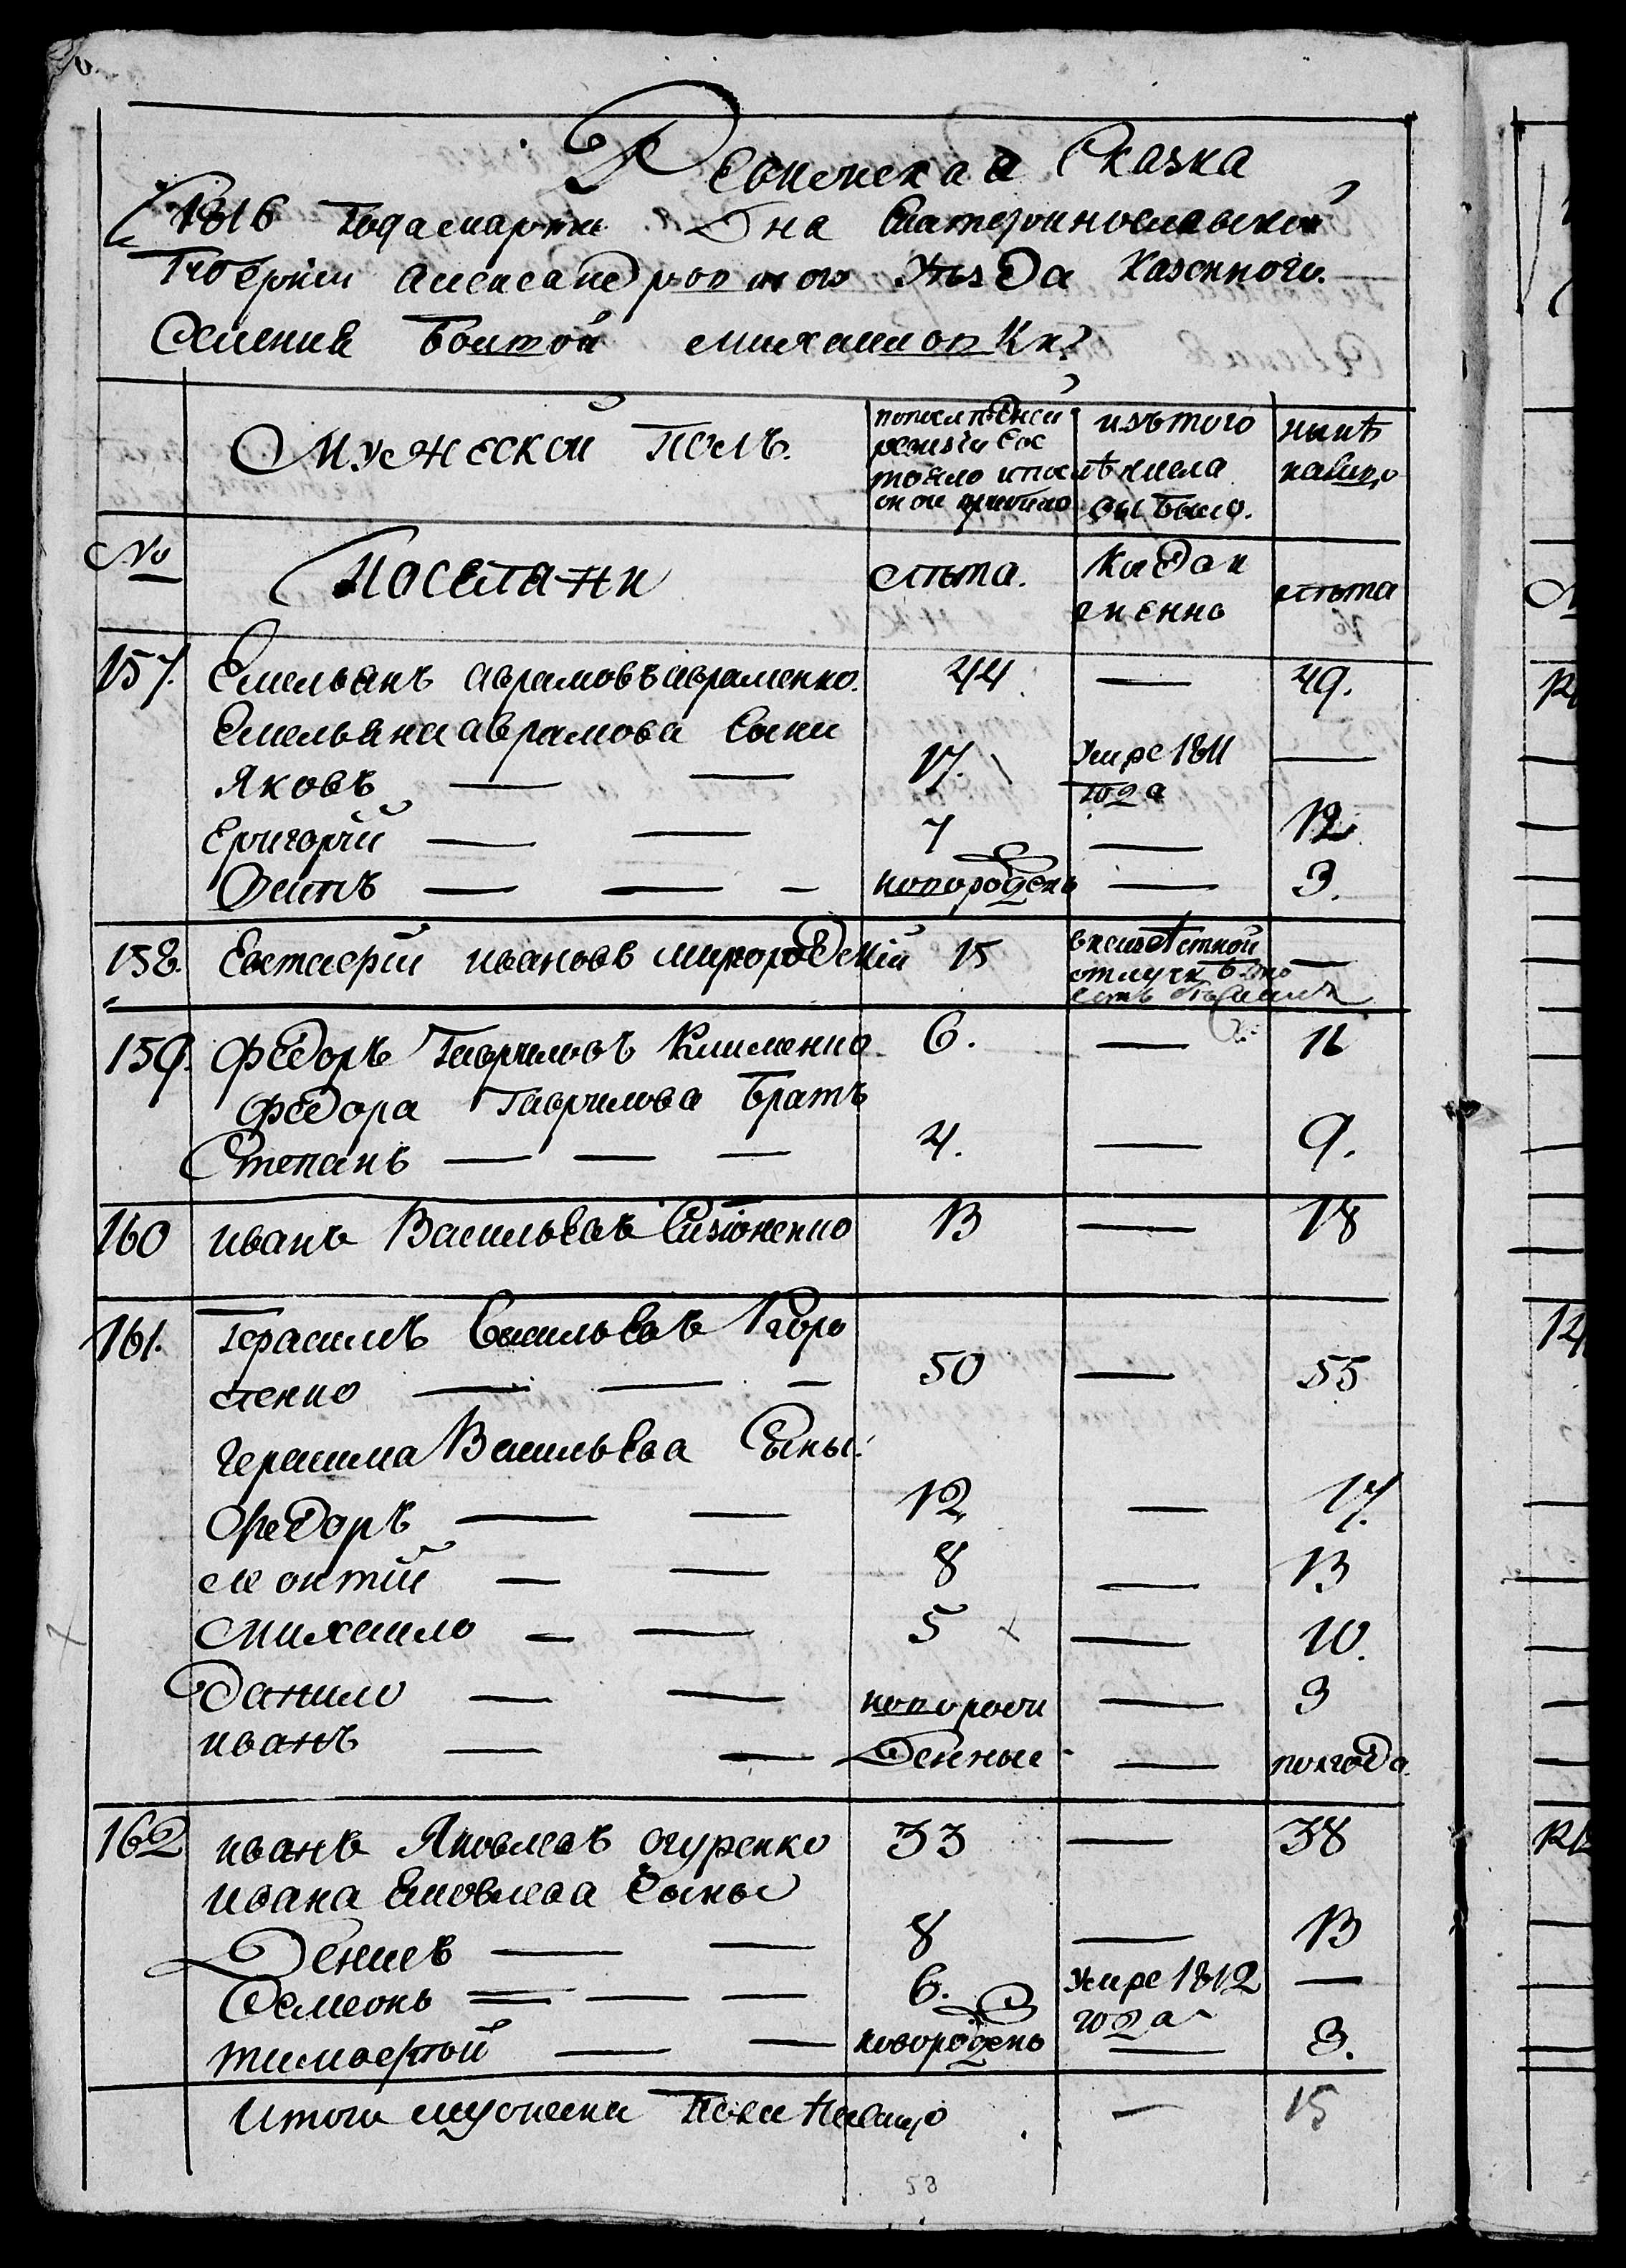 Ревижская Сказка
1816 Года марта Дня Екатеринославской
Губернии Александровского Уезда Казенного
Селения Белой Михайловки
Мужеской Полъ.
по последней ревизии состояло и после оной прибыло
изъ того числа выбыло.
ныне налицо
№ Поселяни лѣта. Когда именно лѣта
157. Емельянъ Аврамовъ Авраменко. 44 — 49.
Емельяна Аврамова Сыни
Яковъ — — 17. Умре 1811 года —
Григорий — — 7 — 12
Осипъ — — — новорожденъ — 3.
158. Евстаfий Ивановъ Миргородский 15 в неизвѣстной отлучкѣ —
159. Федоръ Гавриловъ Клименко. 6. — 11
Федора Гаврилова Братъ
Степанъ — — — 4. — 9.
160 Иванъ Васильевъ Сизоненко 13 — 18
161. Герасимъ Васильевъ Коро
стенко — — — 50 — 55
Герасима Васильева Сыны.
Федоръ — — 12 — 17.
Леонтий — — 8 — 13
Михаило — — 5 — 10.
Данило — — новорож — 3
Иванъ — — денные — полгода
162 Иванъ Яковлевъ Огуренко 33 — 38
Ивана Яковлева Сыны
Денисъ — — 8 — 13
Семеонъ — — — 6. Умре 1812 года —
Тимоfей — — новорожденъ — 3.
Итого мужеска Пола налицо — 15
58